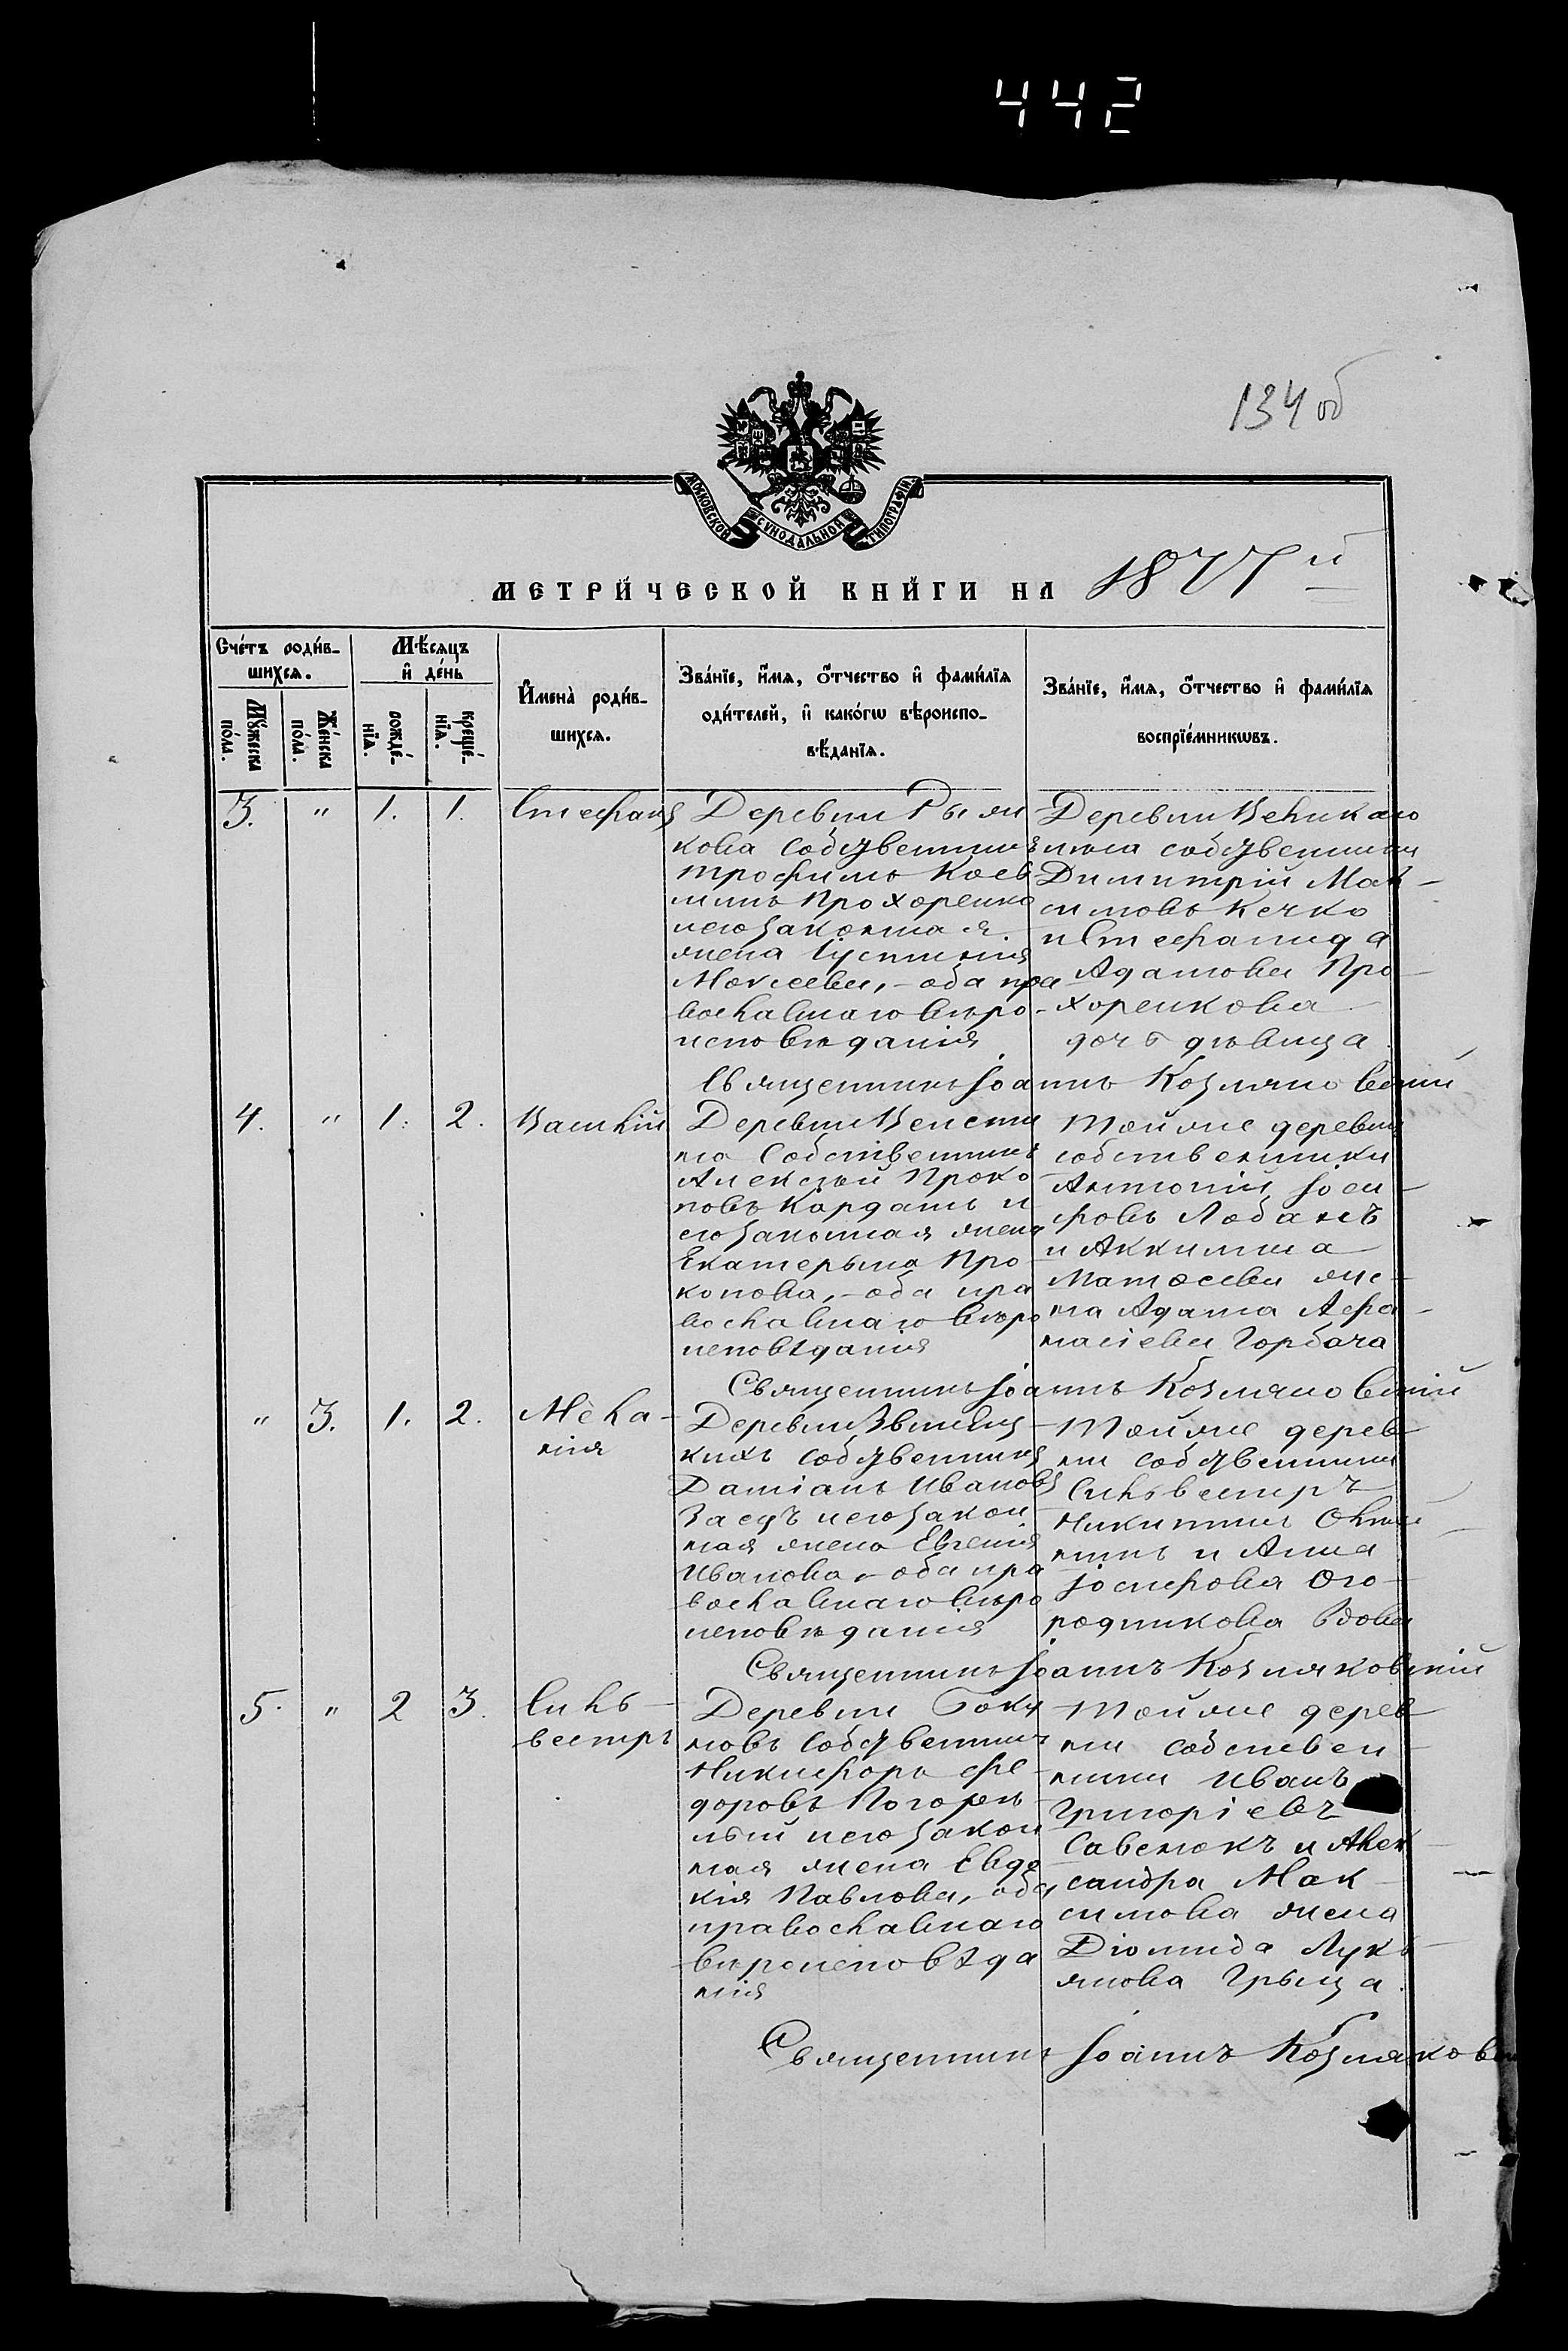 442
134 об
МОСКОВСКОЙ СѴНОДАЛЬНОЙ ТИПОГРАФІИ
МЕТРИ́ЧЕСКОЙ КНИ́ГИ НА 1877й
Сче́тъ роди́в-
шихсѧ.
Мѣ́сѧцъ
и҆ де́нь
И҆мена̀ роди́в-
шихсѧ.
Зва́нїе, и҆́мѧ, ѻ҆́тчество и҆ фами́лїѧ
оди́телей, и҆ како́гѡ вѣроиспо-
вѣ́данїѧ.
Зва́нїе, и҆́мѧ, ѻ҆́тчество и҆ фами́лїѧ
воспрїе́мникѡвъ.
Мꙋ́жеска
по́ла.
Же́нска
по́ла.
рожде́-
нїѧ.
креще́-
нїѧ.
3. " 1. 1. Стефанъ
Деревни
кова собственникъ
Трофимъ
Прохоренко
и его законная
жена Іустинія
Моисеева, - оба пра
вославнаго вѣро-
исповѣданія
Деревни Великаго
собственники
Димитрій Мак-
симовъ Кечко
и Стефанида
Адамова Про-
хоренкова
дочь дѣвица.
Священникъ Іоаннъ Козляковскій
4. " 1. 2. Василій
Деревни
собственникъ
Алексѣй Проко
повъ Кардашъ и
его законная жена
Екатерина Про
копова, - оба пра
вославнаго вѣро
исповѣданія
Той же деревни
собственники
Антоній Іоси-
фовъ Лобачъ
и Акилина
Матѳеева же-
на Адама Афа-
насіева Горбача
Священникъ Іоаннъ Козляковскій
" 3. 1. 2. Мела-
нія
Деревни
кихъ собственникъ
Даміанъ Ивановъ
Заецъ и его закон
ная жена Евгенія
Иванова - оба пра
вославнаго вѣро
исповѣданія
Той же дерев
ни собственники
Сильвестръ
Никитинъ
и Анна
Іосифова Ого-
родникова вдова
Священникъ Іоаннъ Козляковскій
5. " 2 3. Силь-
вестръ
Деревни
новъ собственникъ
Никифоръ Ѳе-
доровъ Погорѣ-
лый и его закон
ная жена Евдо
кія Павлова, - оба
православнаго
вѣроисповѣда
нія
Той же дерев
ни собствен-
ники Иванъ
Григорьевъ
Савенокъ и Алек
сандра Мак-
симова жена
Діомида Лукь-
янова Грыца.
Священникъ Іоаннъ Козляковскій